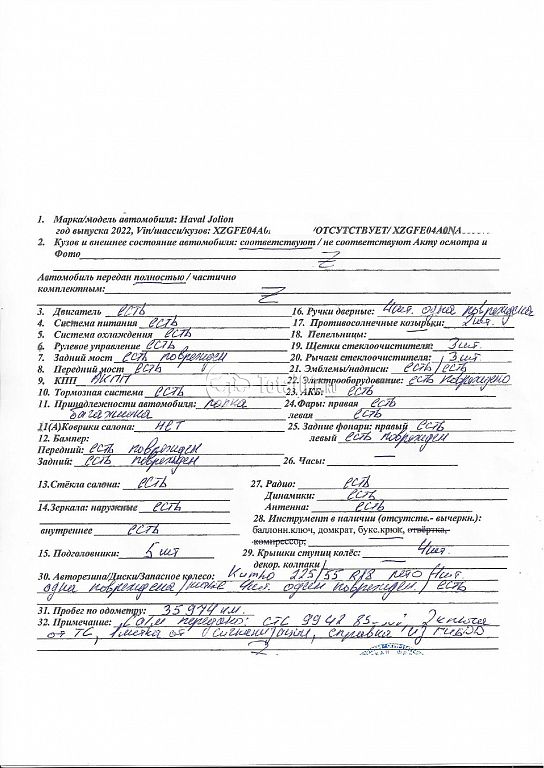 1. Марка/модель автомобиля: Haval Jolion
год выпуска 2022, Vin/шасси/кузов: XZGFE04A /ОТСУТСТВУЕТ/ XZGFE04A0NA
2. Кузов и внешнее состояние автомобиля: соответствуют / не соответствуют Акту осмотра и
Фото
Автомобиль передан полностью / частично
комплектным:
3. Двигатель есть
16. Ручки дверные: 4шт. одна повреждена
4. Система питания есть
17. Противосолнечные козырьки: 2шт.
5. Система охлаждения есть
18. Пепельницы:
6. Рулевое управление есть
19. Щетки стеклоочистителя: 3шт.
7. Задний мост есть поврежден
20. Рычаги стеклоочистителя: 3шт.
8. Передний мост есть
21. Эмблемы/надписи: есть/есть
9. КПП АКПП
22. Электрооборудование: есть повреждено
10. Тормозная система есть
23. АКБ: есть
11. Принадлежности автомобиля: полка
багажника
24.Фары: правая есть
левая есть
11(А)Коврики салона: нет
25. Задние фонари: правый есть
левый есть поврежден
12. Бампер:
Передний: есть поврежден
Задний: есть поврежден
26. Часы:
13.Стёкла салона: есть
27. Радио: есть
Динамики: есть
14.Зеркала: наружные есть
Антенна: есть
28. Инструмент в наличии (отсутств.- вычеркн.):
внутреннее есть
баллонн.ключ, домкрат, букс.крюк, отвёртка,
компрессор;
15. Подголовники: 5 шт
29. Крышки ступиц колёс: 4шт.
декор. колпаки
30. Авторезина/Диски/Запасное колесо: 225/55 R18 лето 4шт
одна повреждена/литые 4шт. один поврежден/есть
31. Пробег по одометру: 35974 км.
32. Примечание: С а/м передано: СТС 9942 2 ключа
от ТС, 1 метка от сигнализации, справка из ГИБДД